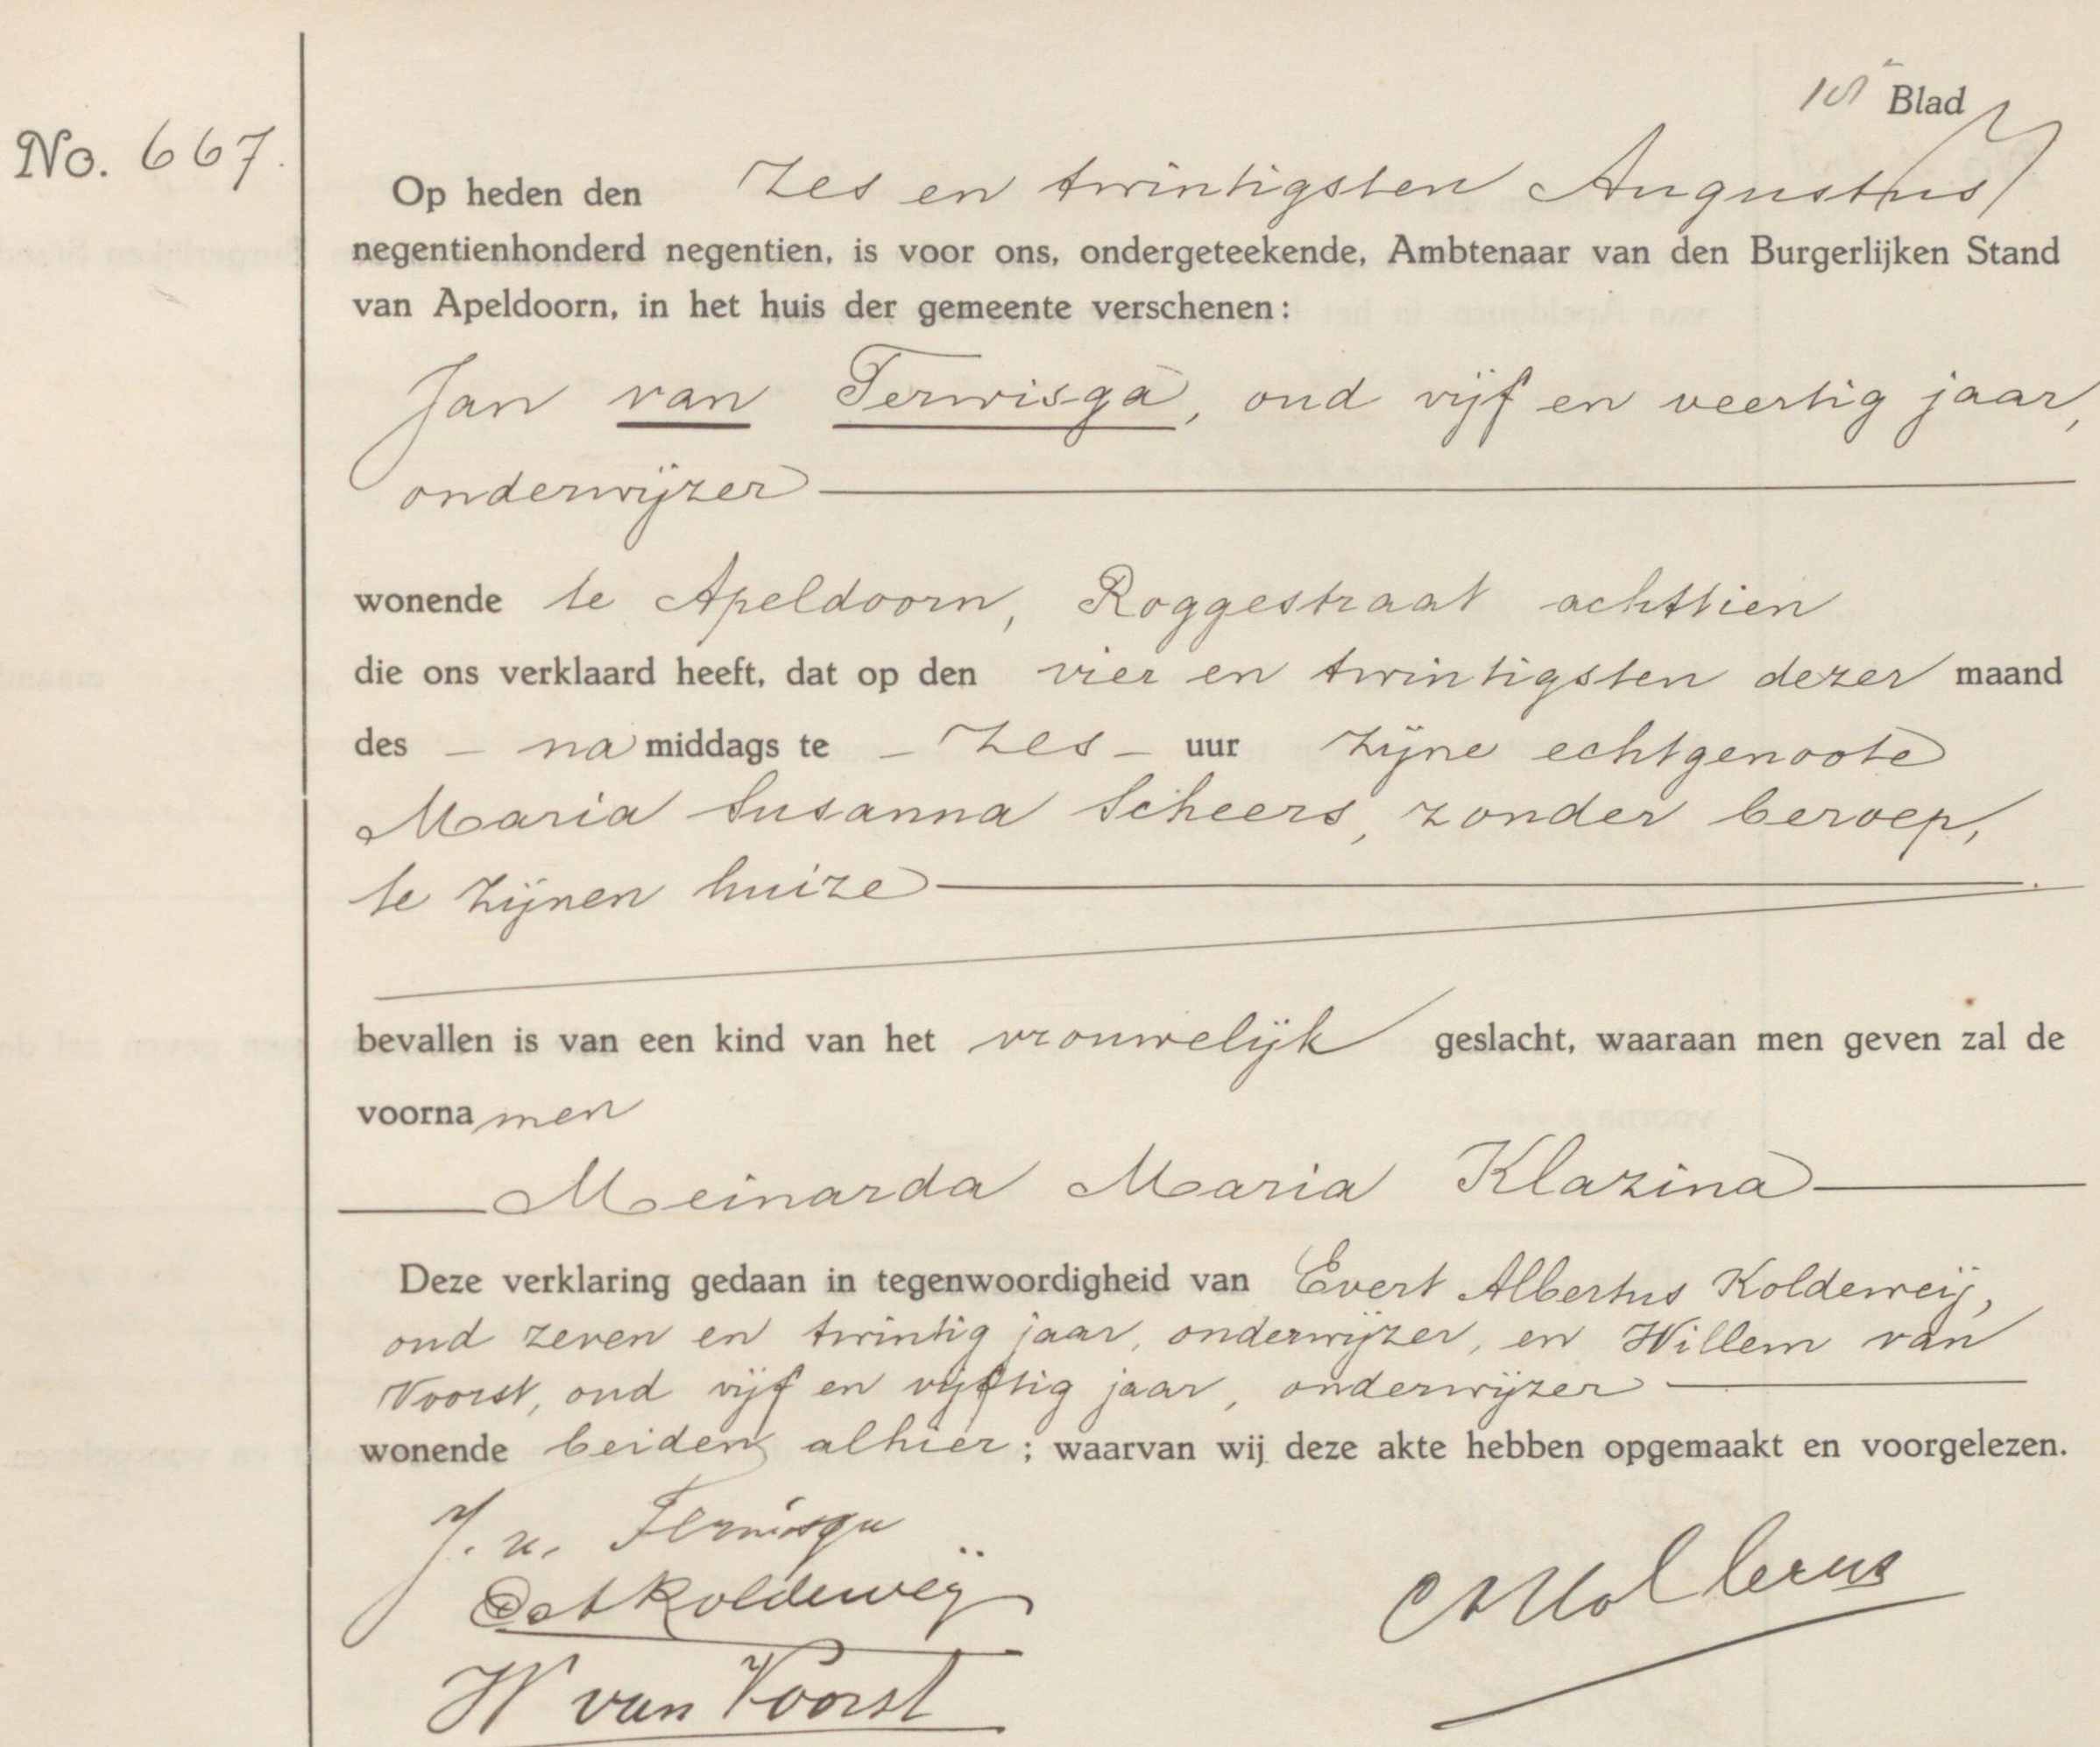 Blad
No. 667.
Op heden den zes en twintigsten Augustus
negentienhonderd negentien, is voor ons, ondergeteekende, Ambtenaar van den Burgerlijken Stand
van Apeldoorn, in het huis der gemeente verschenen:
Jan van Terwisga, oud vijf en veertig jaar,
onderwijzer
wonende te Apeldoorn, Roggestraat achttien
die ons verklaard heeft, dat op den vier en twintigsten dezer maand
des – na middags te – zes – uur zijne echtgenoote
Maria Susanna Scheers, zonder beroep,
te zijnen huize
bevallen is van een kind van het vrouwelijk geslacht, waaraan men geven zal de
voorna men
Meinarda Maria Klazina
Deze verklaring gedaan in tegenwoordigheid van Evert Albertus Koldeweij,
oud zeven en twintig jaar, onderwijzer, en Willem van
Voorst, oud vijf en vijftig jaar, onderwijzer
wonende beiden alhier; waarvan wij deze akte hebben opgemaakt en voorgelezen.
J. v. Terwisga
Koldeweij
W van Voorst